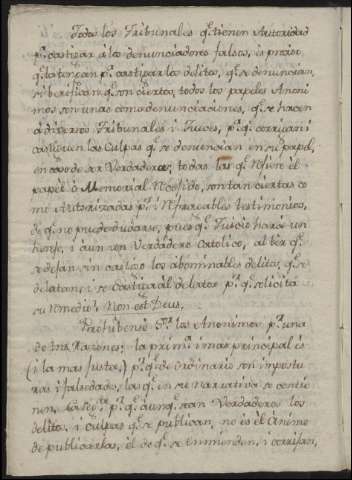 Todos los Tribunales q.e tienen Autoridad
p.a castigar p.r los denunciadores falsos, es preciso
q.e la tengan p.a castigar los delitos, q.e se denuncian,
si berifican q.e son ciertos, todos los papeles Anoni
mos son unas como denunciaciones, q.e se hacen
à diversos Tribunales i Jueces, p.a q.e corrijan i
castiguen las Culpas q.e se denuncian en su papel,
en caso de ser Verdaderas; todas las q.e refiere el
papel ò Memorial son tan ciertas co
mo Autorizadas p.r irreprocables testimonios,
de q.e no puede dudarse, pues q.e Juicio harà un
herege, i aun un Verdadero Catolico, al ber q.e
se dejan sin castigo los abominables delitos, q.e se
delatan, i se castiga al delator p.r q.e solicita
su remedio? Non est Deus.
Prohibense S.or los Anonimos p.r una
de tres Razones: la prim.a i mas principal es
(i la mas justa,) p.r q.e de ordinario son impostu
ras i falsedades, las q.e en su narrativa se contie
nen. La p.r q.e aunq.e sean Verdaderos los
delitos, i culpas q.e se publican, no es el Animo
de publicarlas, el de q.e se enmienden, i corrijan,